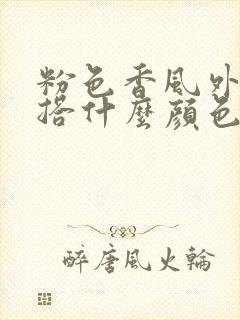 粉色香風外
搭什麼顏色
醉唐風火輪